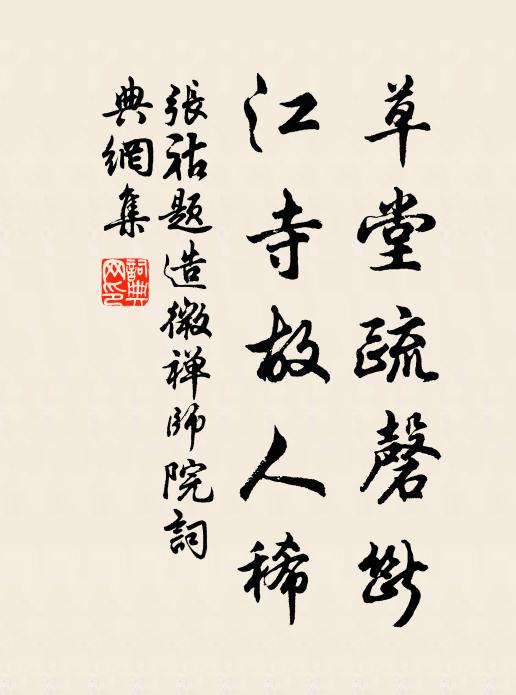 草堂疏磬斷
江寺故人稀
張祜題造微禅師院詞
典網集
詞典
网印